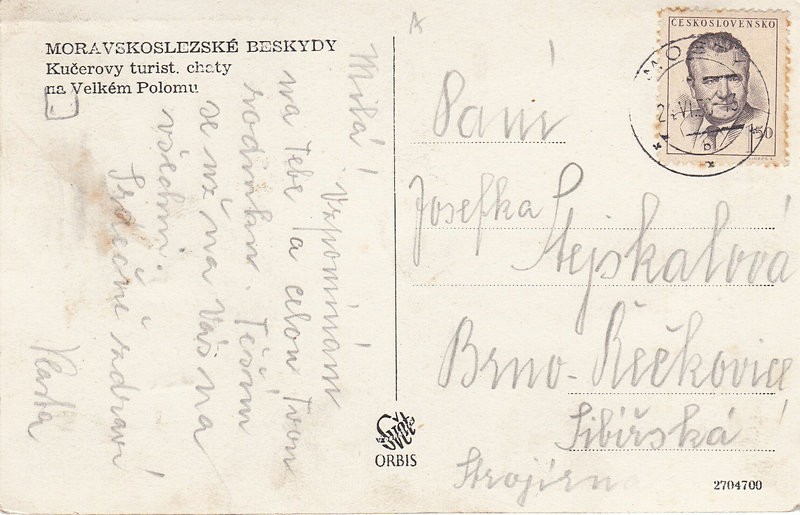 MORAVSKOSLEZSKÉ BESKYDY
Kučerovy turist. chaty
na Velkém Polomu
Milá!
Vzpomínám
na Tebe a celou Tvou
rodinku. Těším
se už na Vás na
všechny.
Srdečně zdraví
Vlasta
A
ČESKOSLOVENSKO
1.50
Paní
Josefka Stejskalová
Brno-Řečkovice
Sibiřská
Strojírna
Svět
ORBIS
2704700